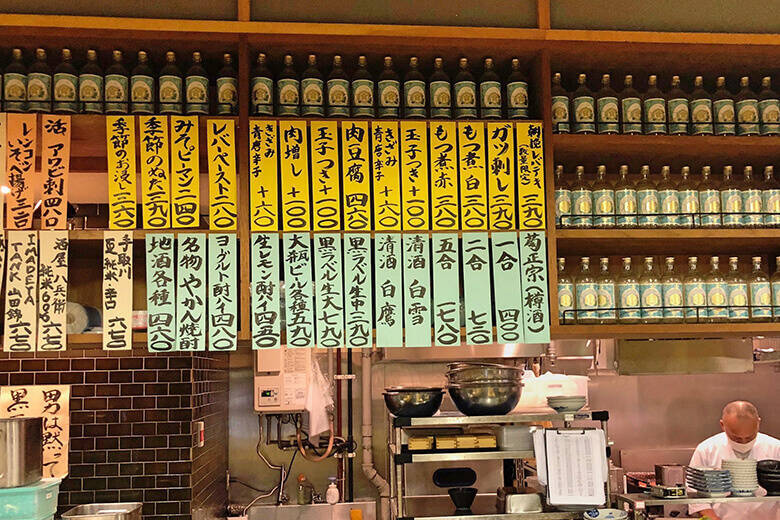 朝〆レバテキ(数量限定)三九〇
ガツ刺し 三九〇
もつ煮 白 三八〇
もつ煮 赤 三八〇
玉子つき+一〇〇
きざみ青唐辛子 +六〇
肉豆腐 四六〇
玉子つき+一〇〇
肉増し +二〇〇
きざみ青唐辛子 +六〇
レバペースト 二八〇
みそピーマン 二四〇
季節のぬた 三八〇
季節のお浸し 三六〇
活アワビ刺 四八〇
菊正宗(樽酒)
一合 四〇〇
二合 七三〇
五合 一七八〇
清酒 白雪
清酒 白鷹
黒ラベル生中 三九〇
黒ラベル生大 七九〇
大瓶ビール各種 五九〇
生レモン酎ハイ 四五〇
ヨーグルト酎ハイ 四八〇
名物やかん焼酎
地酒各種 四六〇
手取川
六七〇
酒屋八兵衛
純米 600
六七〇
IMADEYA
TANK 山田錦
六七〇
男は黙って
黒